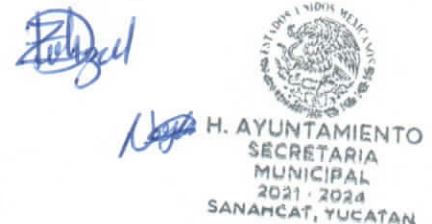 ESTADOS UNIDOS MEXICANOS
H. AYUNTAMIENTO
SECRETARIA
MUNICIPAL
2021 - 2024
SANAHCAT, YUCATAN